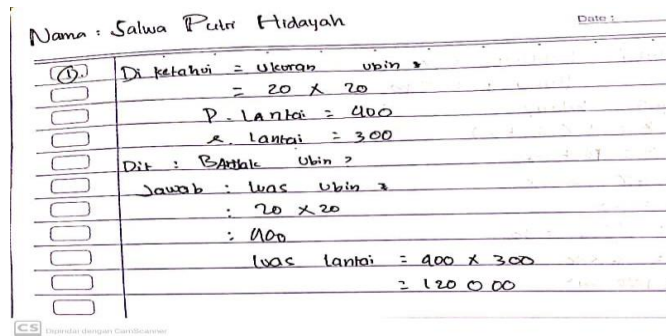 Nama : Salwa Putri Hidayah
Date :
①. Di ketahui = Ukuran ubin :
= 20 x 20
P. Lantai = 400
l. lantai = 300
Dit : BAnyak Ubin ?
Jawab : luas ubin :
: 20 x 20
: 400
luas lantai = 400 x 300
= 120 000
CS Dipindai dengan CamScanner